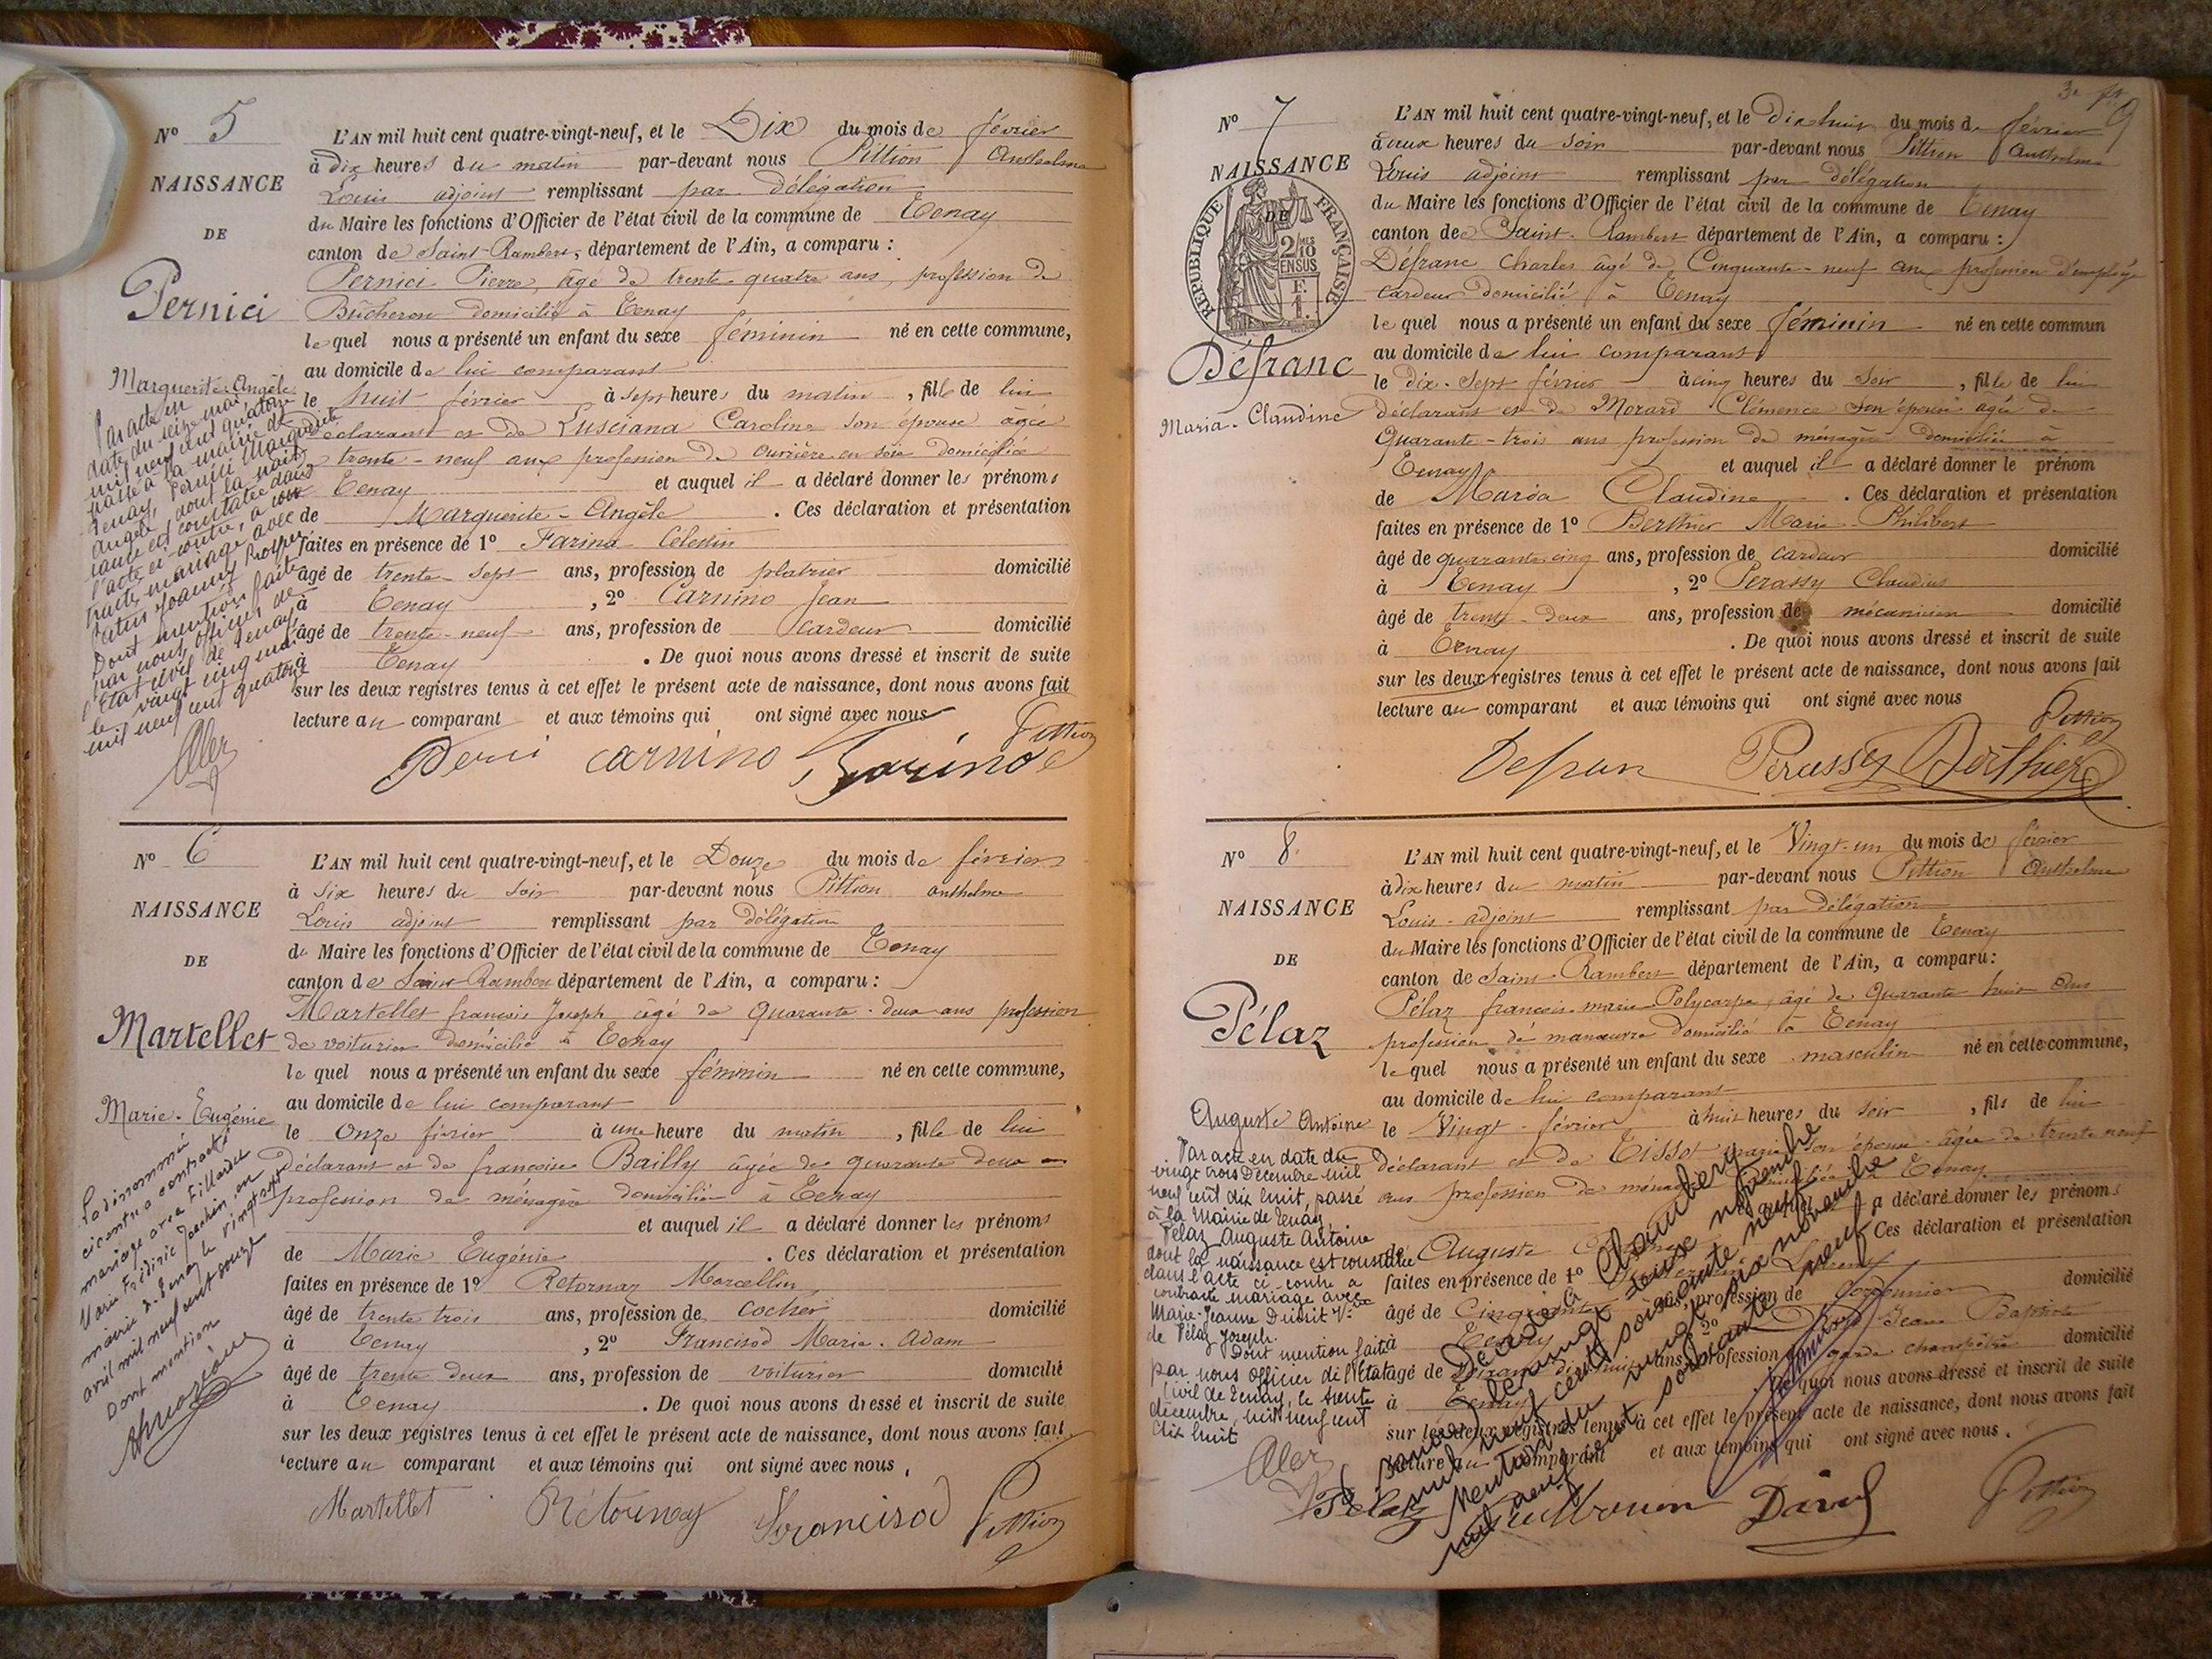 N° 5
NAISSANCE
DE
Pernici
Marguerite-Angèle
Par acte en
date du seize mai
mil neuf cent quatorze
passé à la mairie de
Tenay, Pernici Marguerite
Angèle, dont la nais-
sance est constatée dans
l'acte ci-contre, a con-
tracté mariage avec
Joanny Prosper
Dont mention faite
par nous, officier de
l'Etat civil de Tenay
le vingt cinq mai
mil neuf cent quatorze
Aler
L'AN mil huit cent quatre-vingt-neuf, et le Dix du mois de février
à dix heures du matin par-devant nous Pittion Anthelme
Louis adjoint remplissant par délégation
du Maire les fonctions d'Officier de l'état civil de la commune de Tenay
canton de Saint-Rambert, département de l'Ain, a comparu :
Pernici Pierre, âgé de trente quatre ans, profession de
Bûcheron domicilié à Tenay
lequel nous a présenté un enfant du sexe féminin né en cette commune,
au domicile de lui comparant
le huit février à sept heures du matin, fille de lui
déclarant et de Lusciana Caroline son épouse âgée
de trente-neuf ans profession de ouvrière en soie domiciliée
à Tenay et auquel il a déclaré donner les prénoms
de Marguerite-Angèle. Ces déclaration et présentation
faites en présence de 1° Farina Célestin
âgé de trente-sept ans, profession de platrier domicilié
à Tenay, 2° Carnino Jean
âgé de trente-neuf ans, profession de cardeur domicilié
à Tenay. De quoi nous avons dressé et inscrit de suite
sur les deux registres tenus à cet effet le présent acte de naissance, dont nous avons fait
lecture au comparant et aux témoins qui ont signé avec nous
Perni carnino Farino Pittion
N° 6
NAISSANCE
DE
Martellet
Marie-Eugénie
La dénommée
ci contre a contracté
mariage avec Fillardet
Marie Frédéric Joachim, en
mairie de Tenay le vingt sept
avril mil neuf cent douze
Dont mention
L'AN mil huit cent quatre-vingt-neuf, et le Douze du mois de février
à six heures du soir par-devant nous Pittion anthelme
Louis adjoint remplissant par délégation
du Maire les fonctions d'Officier de l'état civil de la commune de Tenay
canton de Saint-Rambert département de l'Ain, a comparu :
Martellet françois Joseph âgé de quarante-deux ans profession
de voiturier domicilié à Tenay
lequel nous a présenté un enfant du sexe féminin né en cette commune,
au domicile de lui comparant
le Onze février à une heure du matin, fille de lui
déclarant et de françoise Bailly âgée de quarante deux ans
profession de ménagère domiciliée à Tenay
et auquel il a déclaré donner les prénoms
de Marie Eugénie. Ces déclaration et présentation
faites en présence de 1° Retornaz Marcellin
âgé de trente trois ans, profession de cocher domicilié
à Tenay, 2° Francisod Marie-Adam
âgé de trente deux ans, profession de voiturier domicilié
à Tenay. De quoi nous avons dressé et inscrit de suite
sur les deux registres tenus à cet effet le présent acte de naissance, dont nous avons fait
lecture au comparant et aux témoins qui ont signé avec nous.
Martellet Rétournaz francisod Pittion
3e ft
9
N° 7
NAISSANCE
DE
REPUBLIQUE FRANÇAISE
2/10
EN SUS
F.
1.
Défranc
Maria-Claudine
L'AN mil huit cent quatre-vingt-neuf, et le Dix huit du mois de février
à deux heures du soir par-devant nous Pittion Anthelme
Louis adjoint remplissant par délégation
du Maire les fonctions d'Officier de l'état civil de la commune de Tenay
canton de Saint-Rambert département de l'Ain, a comparu :
Défranc Charles âgé de Cinquante-neuf ans profession d'employé
cardeur domicilié à Tenay
lequel nous a présenté un enfant du sexe féminin né en cette commun
au domicile de lui comparant
le dix-sept février à cinq heures du soir, fille de lui
déclarant et de Morard Clémence son épouse âgée de
Quarante-trois ans profession de ménagère domiciliée à
Tenay et auquel il a déclaré donner le prénom
de Maria Claudine. Ces déclaration et présentation
faites en présence de 1° Berthier Marie-Philibert
âgé de quarante cinq ans, profession de cardeur domicilié
à Tenay, 2° Perassy Claudius
âgé de trente-deux ans, profession de mécanicien domicilié
à Tenay. De quoi nous avons dressé et inscrit de suite
sur les deux registres tenus à cet effet le présent acte de naissance, dont nous avons fait
lecture au comparant et aux témoins qui ont signé avec nous
Pittion
Defran Perassy Berthier
N° 8
NAISSANCE
DE
Pélaz
Auguste Antoine
Par acte en date du
vingt trois Décembre mil
neuf cent dix huit, passé
à la Mairie de Tenay
Pelaz Auguste Antoine
dont la naissance est constatée
dans l'acte ci-contre a
contracté mariage avec
Marie-Jeanne Dubit Vve
de Pélaz Joseph.
Dont mention faite
par nous Officier de l'Etat
Civil de Tenay, le trente
décembre mil neuf cent
dix huit
Aler
L'AN mil huit cent quatre-vingt-neuf, et le Vingt-un du mois de février
à dix heures du matin par-devant nous Pittion Anthelme
Louis-adjoint remplissant par délégation
du Maire les fonctions d'Officier de l'état civil de la commune de Tenay
canton de Saint-Rambert département de l'Ain, a comparu :
Pélaz françois marie Polycarpe, âgé de quarante huit ans
profession de manœuvre domicilié à Tenay
lequel nous a présenté un enfant du sexe masculin né en cette commune,
au domicile de lui comparant
le Vingt-février à huit heures du soir, fils de lui
déclarant et de Tissot Marie son épouse âgée de trente neuf
ans profession de ménagère domiciliée à Tenay
a déclaré donner les prénoms
de Auguste Ces déclaration et présentation
faites en présence de 1°
âgé de Cinquante ans, profession de cordonnier domicilié
à Tenay 2° Jean Baptiste
âgé de ans, profession de garde champêtre domicilié
à Tenay De quoi nous avons dressé et inscrit de suite
sur les deux registres tenus à cet effet le présent acte de naissance, dont nous avons fait
lecture au comparant et aux témoins qui ont signé avec nous.
Décédé à Chambéry
(Savoie) le vingt novembre
mil neuf cent soixante neuf
Mention du vingt six novembre
mil neuf cent soixante neuf
Pélaz David Pittion